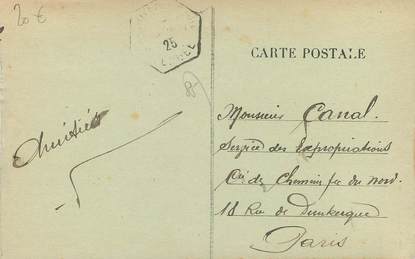 20 €
25
CARTE POSTALE
Amitiés
Monsieur Canal.
Service des Expropriations
Cie du Chemin fer du Nord.
18 Rue de Dunkerque
Paris